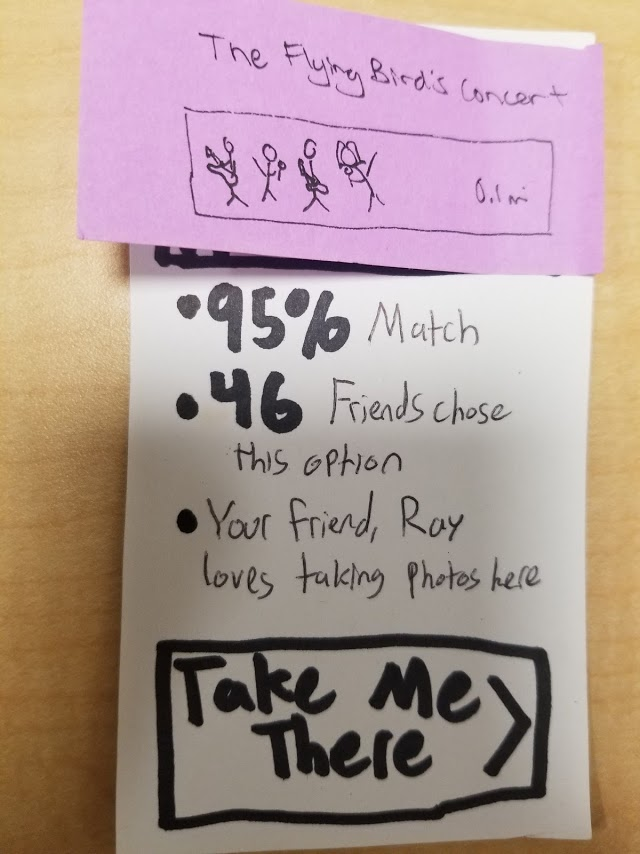 The Flying Birds Concert
0.1 mi
• 95% Match
• 46 Friends chose
this option
• Your friend, Ray
loves taking photos here
Take Me
There >